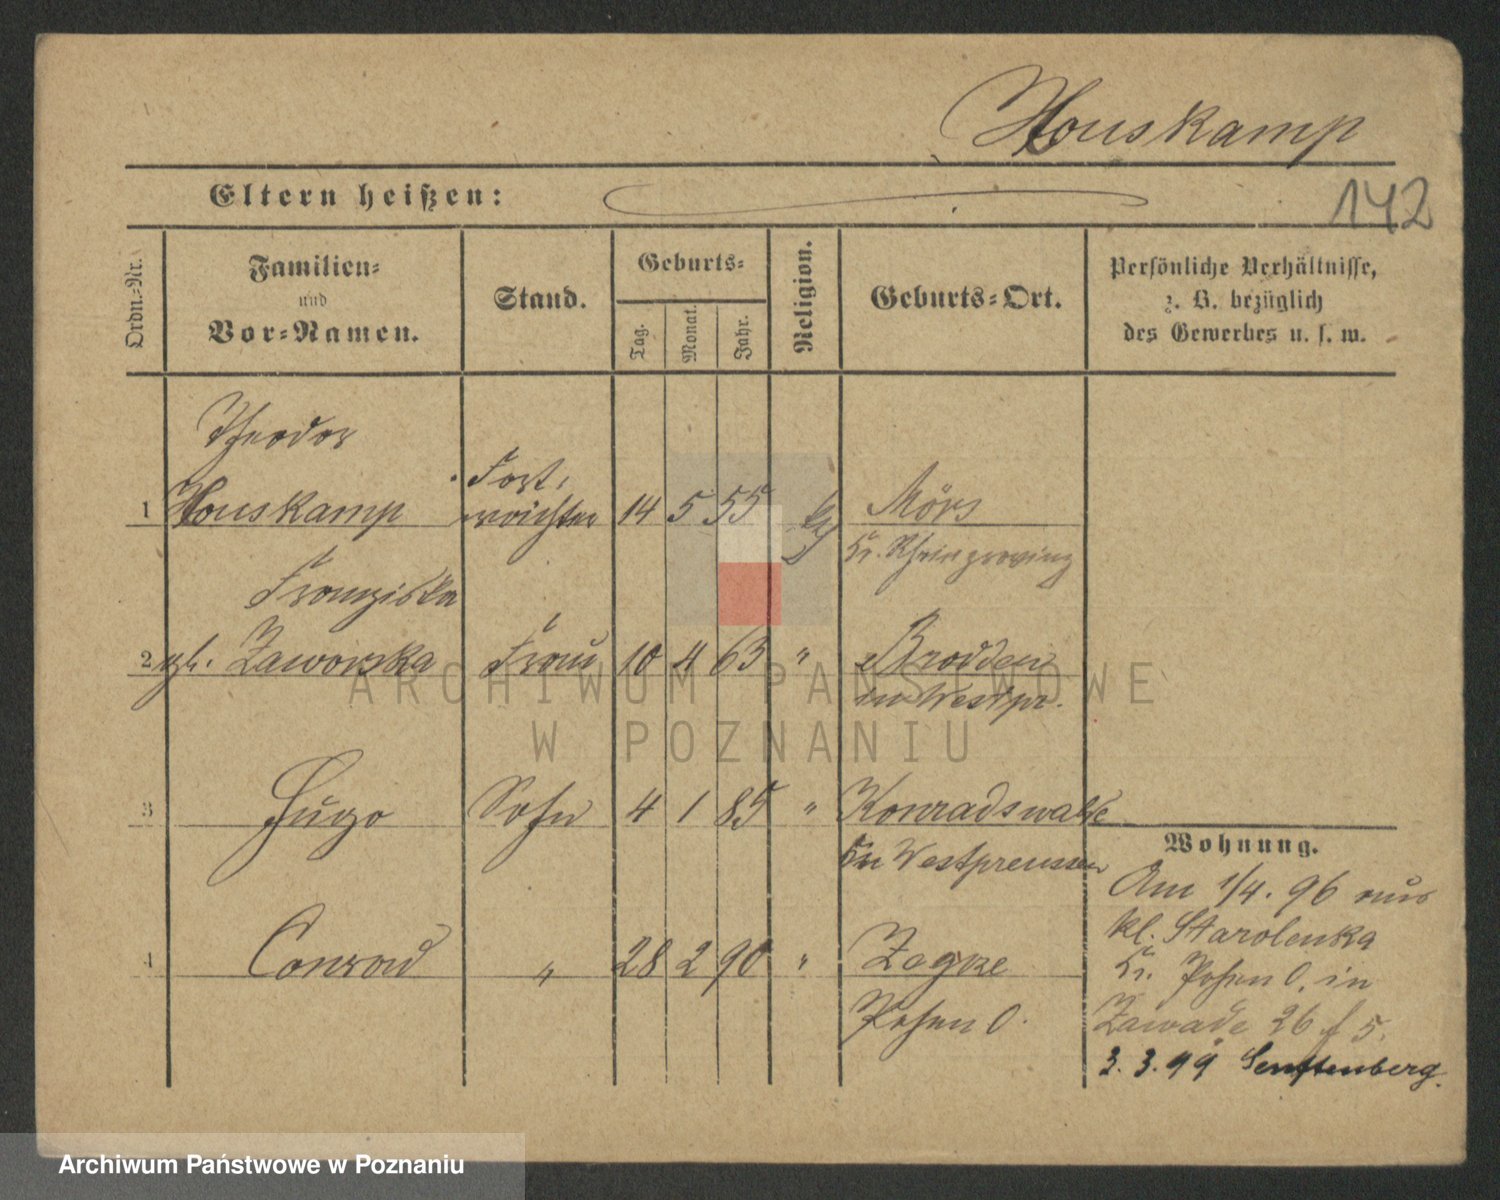 Houskamp
Eltern heißen:
142
Ordn.-Nr.
Familien-
und
Vor-Namen.
Stand.
Geburts-
Tag.
Monat.
Jahr.
Religion.
Geburts-Ort.
Persönliche Verhältnisse,
z. B. bezüglich
des Gewerbes u. s. w.
Theodor
1 Houskamp 14 5 55 Mörs
Kr. Rheinprovinz
Franziska
2 gb. Zaworska Frau 10 4 63 " Brodden
in Westpr.
3 Hugo Sohn 4 1 85 " Konradswalde
in Westpreussen
4 Conrad " 28 2 90 "
Posen O.
Wohnung.
Am 1/4. 96 aus
kl. Starolenka
Kr. Posen O. in
Zawade 26 f 5.
3. 3. 99 Senftenberg.
ARCHIWUM PAŃSTWOWE
W POZNANIU
Archiwum Państwowe w Poznaniu